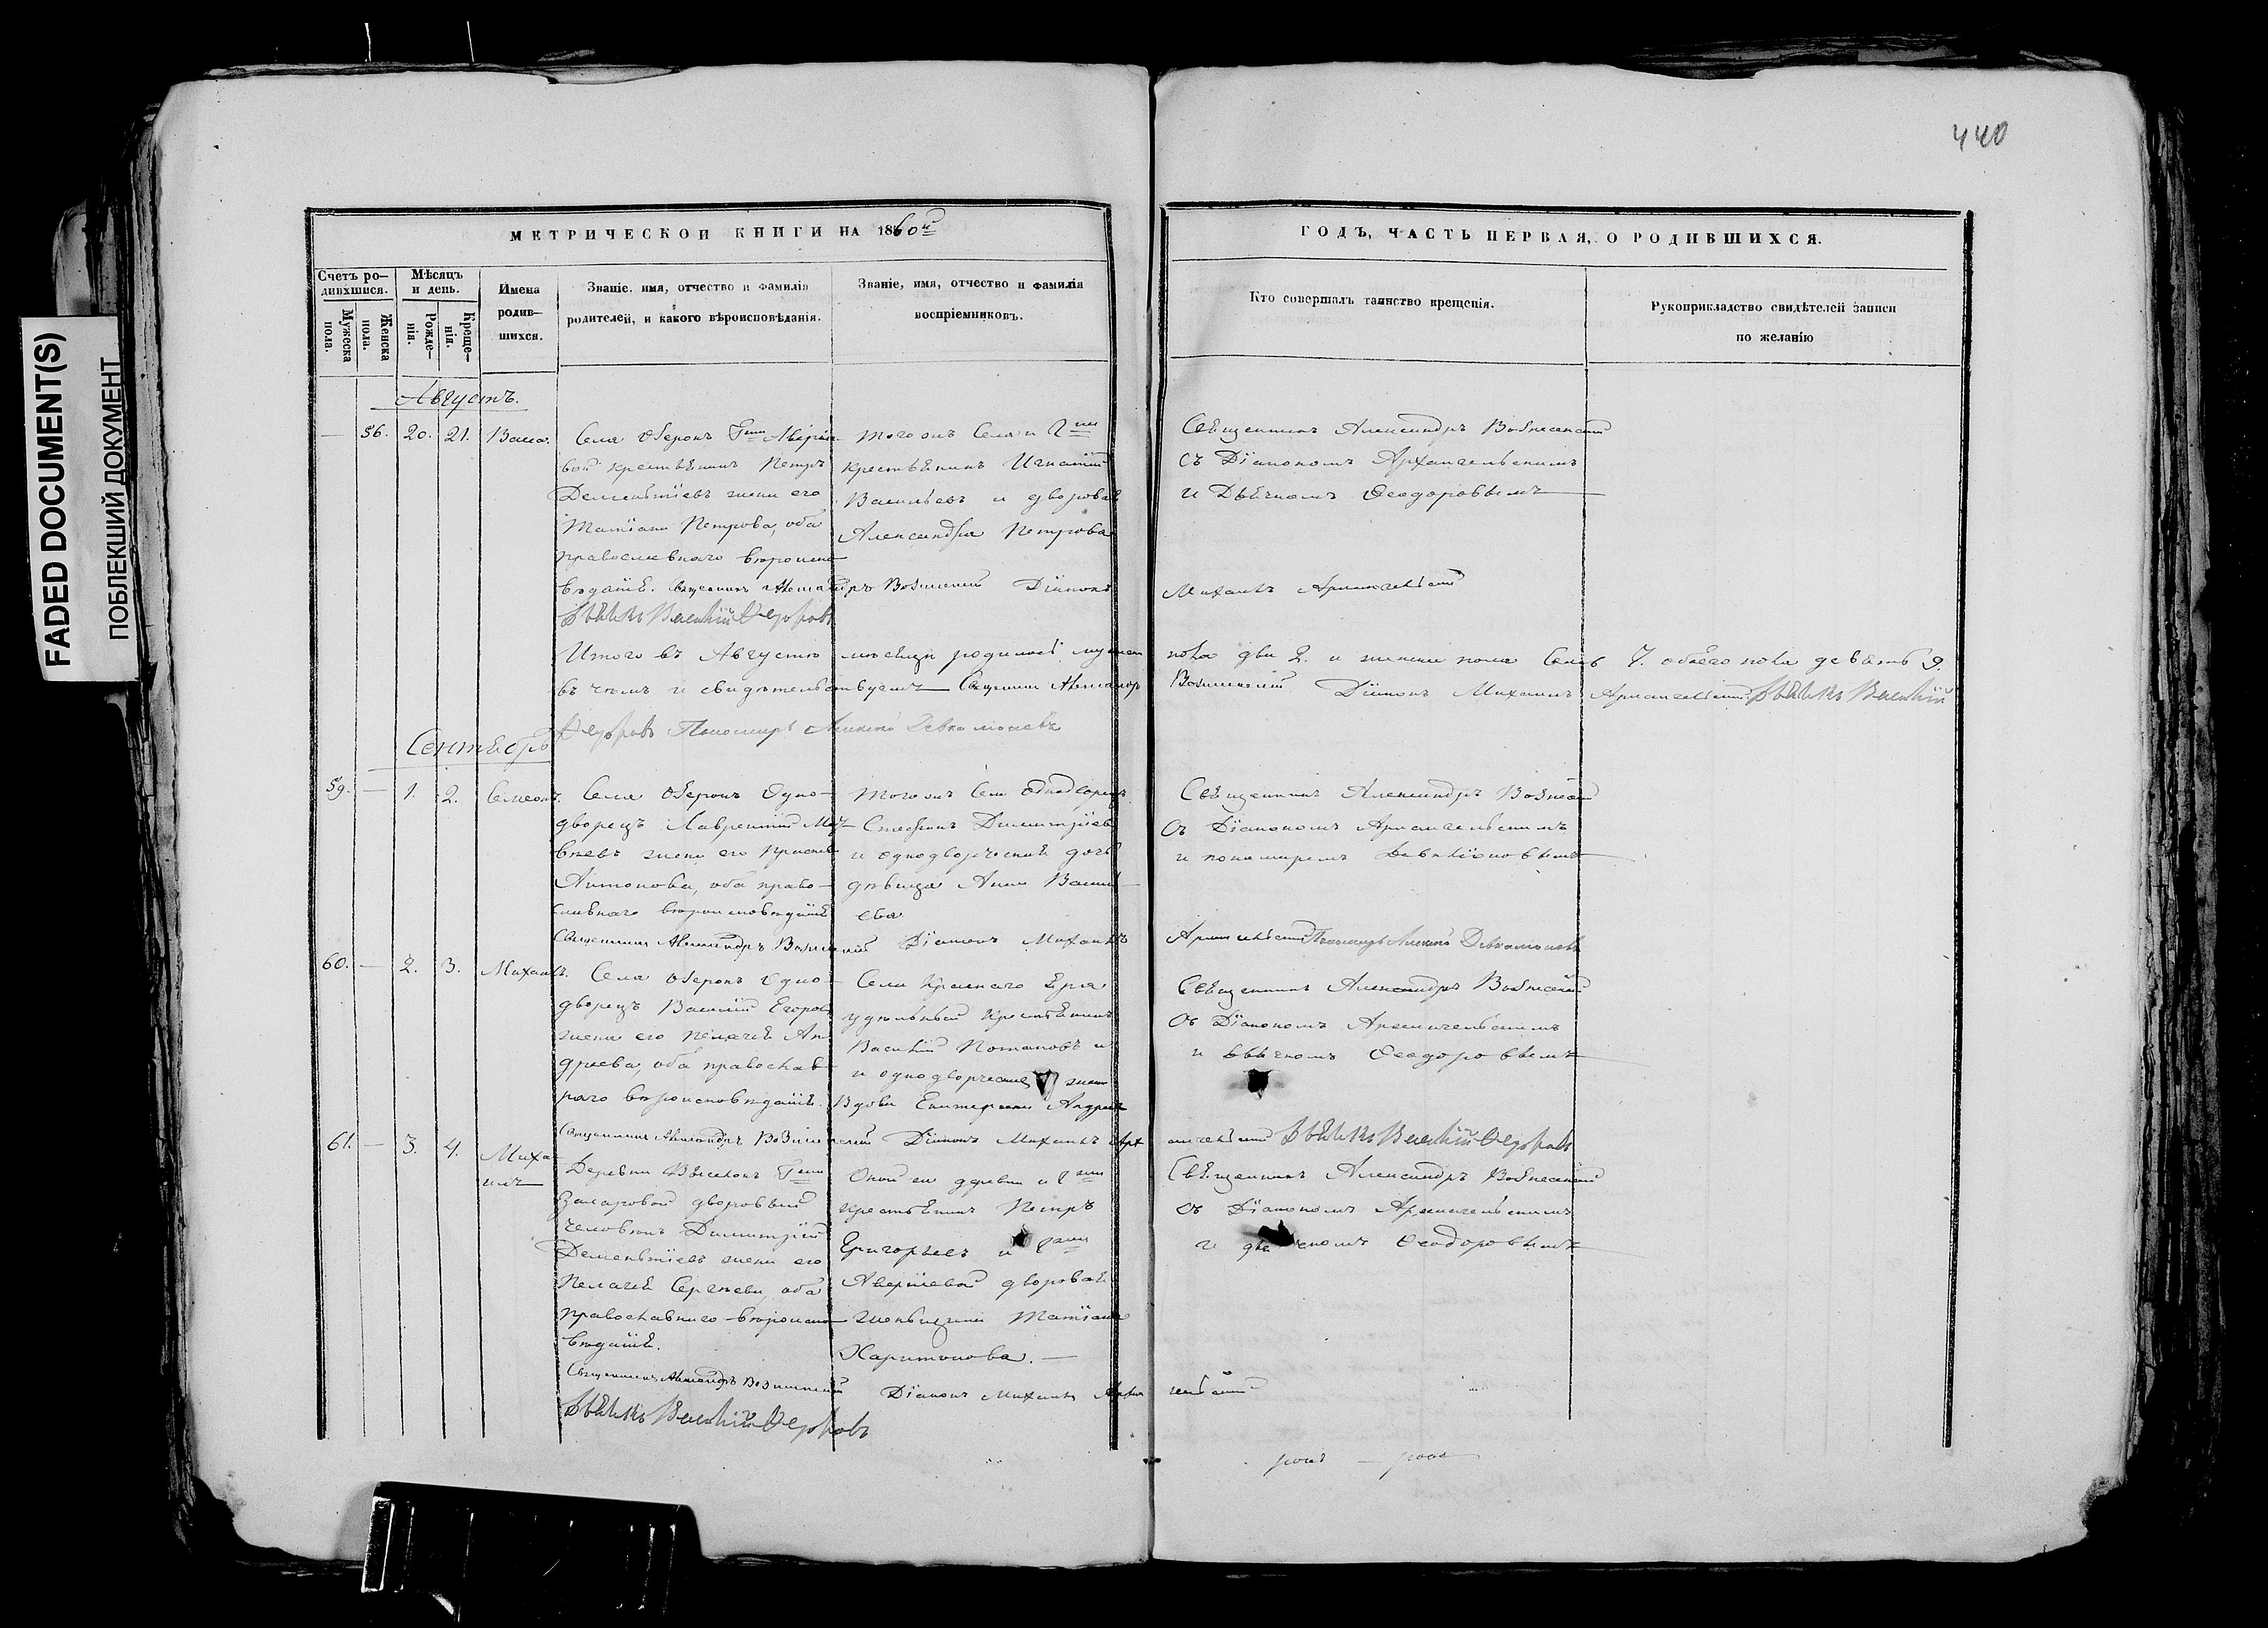 440
FADED DOCUMENT(S)
ПОБЛЕКШИЙ ДОКУМЕНТ
МЕТРИЧЕСКОЙ КНИГИ НА 1860й
ГОДЪ, ЧАСТЬ ПЕРВАЯ, О РОДИВШИХСЯ.
Счетъ ро-
дившихся.
Мужеска пола.
Женска пола.
Мѣсяцъ
и день.
Рожде-
нія.
Креще-
нія.
Имена
родив-
шихся.
Званіе, имя, отчество и фамилія
родителей, и какого вѣроисповѣданія.
Званіе, имя, отчество и фамилія
воспріемниковъ.
Кто совершалъ таинство крещенія.
Рукоприкладство свидѣтелей записи
по желанію
Августъ.
— 56. 20. 21.
Села Озерокъ Гжи
вой крестьянинъ Петръ
Дементіевъ жена его
Татіана Петрова, оба
православнаго вѣроиспо-
вѣданія. Священникъ Александръ Вознесенскій Діаконъ Михаилъ Архангельскій
Дьячекъ Василій Ѳедоровъ
тогожъ Села и Гжи
крестьянинъ Игнатій
Васильевъ и дворовая
Александра Петрова
Священникъ Александръ Вознесенскій
съ Діакономъ Архангельскимъ
и Дьячкомъ Ѳеодоровымъ
Итого въ Августѣ мѣсяцѣ родилось мужеска пола два 2. и женска пола Семь 7. обоего пола девять 9.
въ чемъ и свидѣтельствуемъ Священникъ Александръ Вознесенскій Діаконъ Михаилъ Архангельскій Дьячекъ Василій
Ѳедоровъ Пономарь
Сентябрь
59. — 1. 2. Симеонъ.
Села Озерокъ Одно-
дворецъ Лаврентій Мат-
вѣевъ жена его
Антонова, оба право-
славнаго вѣроисповѣданія
Священникъ Александръ Вознесенскій Діаконъ Михаилъ Архангельскій Пономарь
тогожъ Села Однодворецъ
Стефанъ Димитріевъ
и однодворческая дочь
дѣвица Анна Василь-
ева
Священникъ Александръ Вознесенскій
съ Діакономъ Архангельскимъ
и пономаремъ
60. — 2. 3. Михаилъ.
Села Озерокъ Одно-
дворецъ Василій Егоровъ
жена его Пелагея Ан-
дреева, оба православ-
наго вѣроисповѣданія.
Священникъ Александръ Вознесенскій Діаконъ Михаилъ Архангельскій Дьячекъ Василій Ѳедоровъ
Села Краснаго Яра
удѣльный крестьянинъ
Василій Потаповъ и
и однодворческая жена
Вдова Екатерина
Священникъ Александръ Вознесенскій
съ Діакономъ Архангельскимъ
и Дьячкомъ Ѳеодоровымъ
61. — 3. 4. Миха-
илъ
Деревни Выселокъ Гжи
Захаровой дворовый
человѣкъ Димитрій
Дементіевъ жена его
Пелагея Сергѣева, оба
православнаго вѣроиспо-
вѣданія.
Священникъ Александръ Вознесенскій Діаконъ Михаилъ Архангельскій
Дьячекъ Василій Ѳедоровъ
Оной же деревни и Гжи
крестьянинъ Петръ
Григорьевъ и Гжи
дворовая
женщина Татіана
Харитонова.
Священникъ Александръ Вознесенскій
съ Діакономъ Архангельскимъ
и дьячкомъ Ѳеодоровымъ